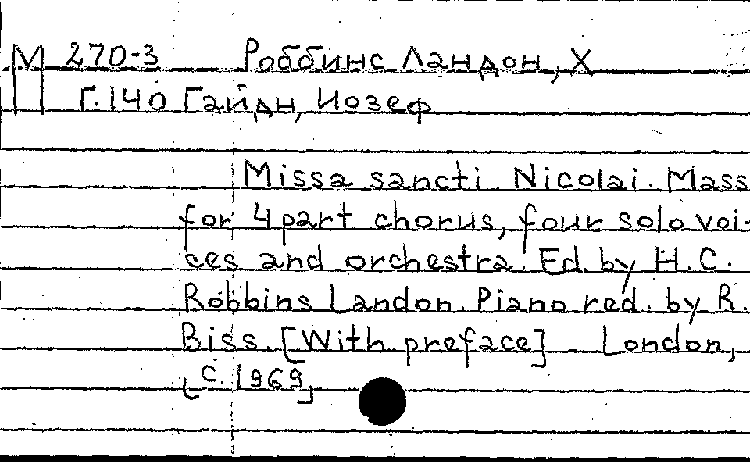 М 270-3 Роббинс Ландон, Х
Г.140 Гайдн, Иозеф
Missa sancti Nicolai. Mass
for 4 part chorus, four solo voi-
ces and orchestra. Ed. by H.C.
Robbins Landon. Piano red. by R.
Biss. [With preface] London,
[C. 1969]